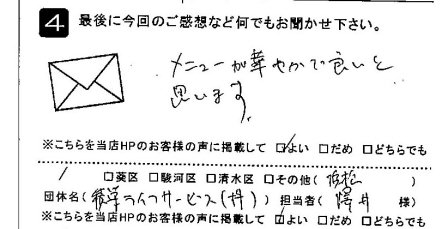 4 最後に今回のご感想など何でもお聞かせ下さい。
メニューが華やかで良いと
思います。
※こちらを当店HPのお客様の声に掲載して ☑よい □だめ □どちらでも
□葵区 □駿河区 □清水区 □その他( 浜松 )
団体名( ライフサービス(株) ) 担当者( 澤井 様)
※こちらを当店HPのお客様の声に掲載して ☑よい □だめ □どちらでも